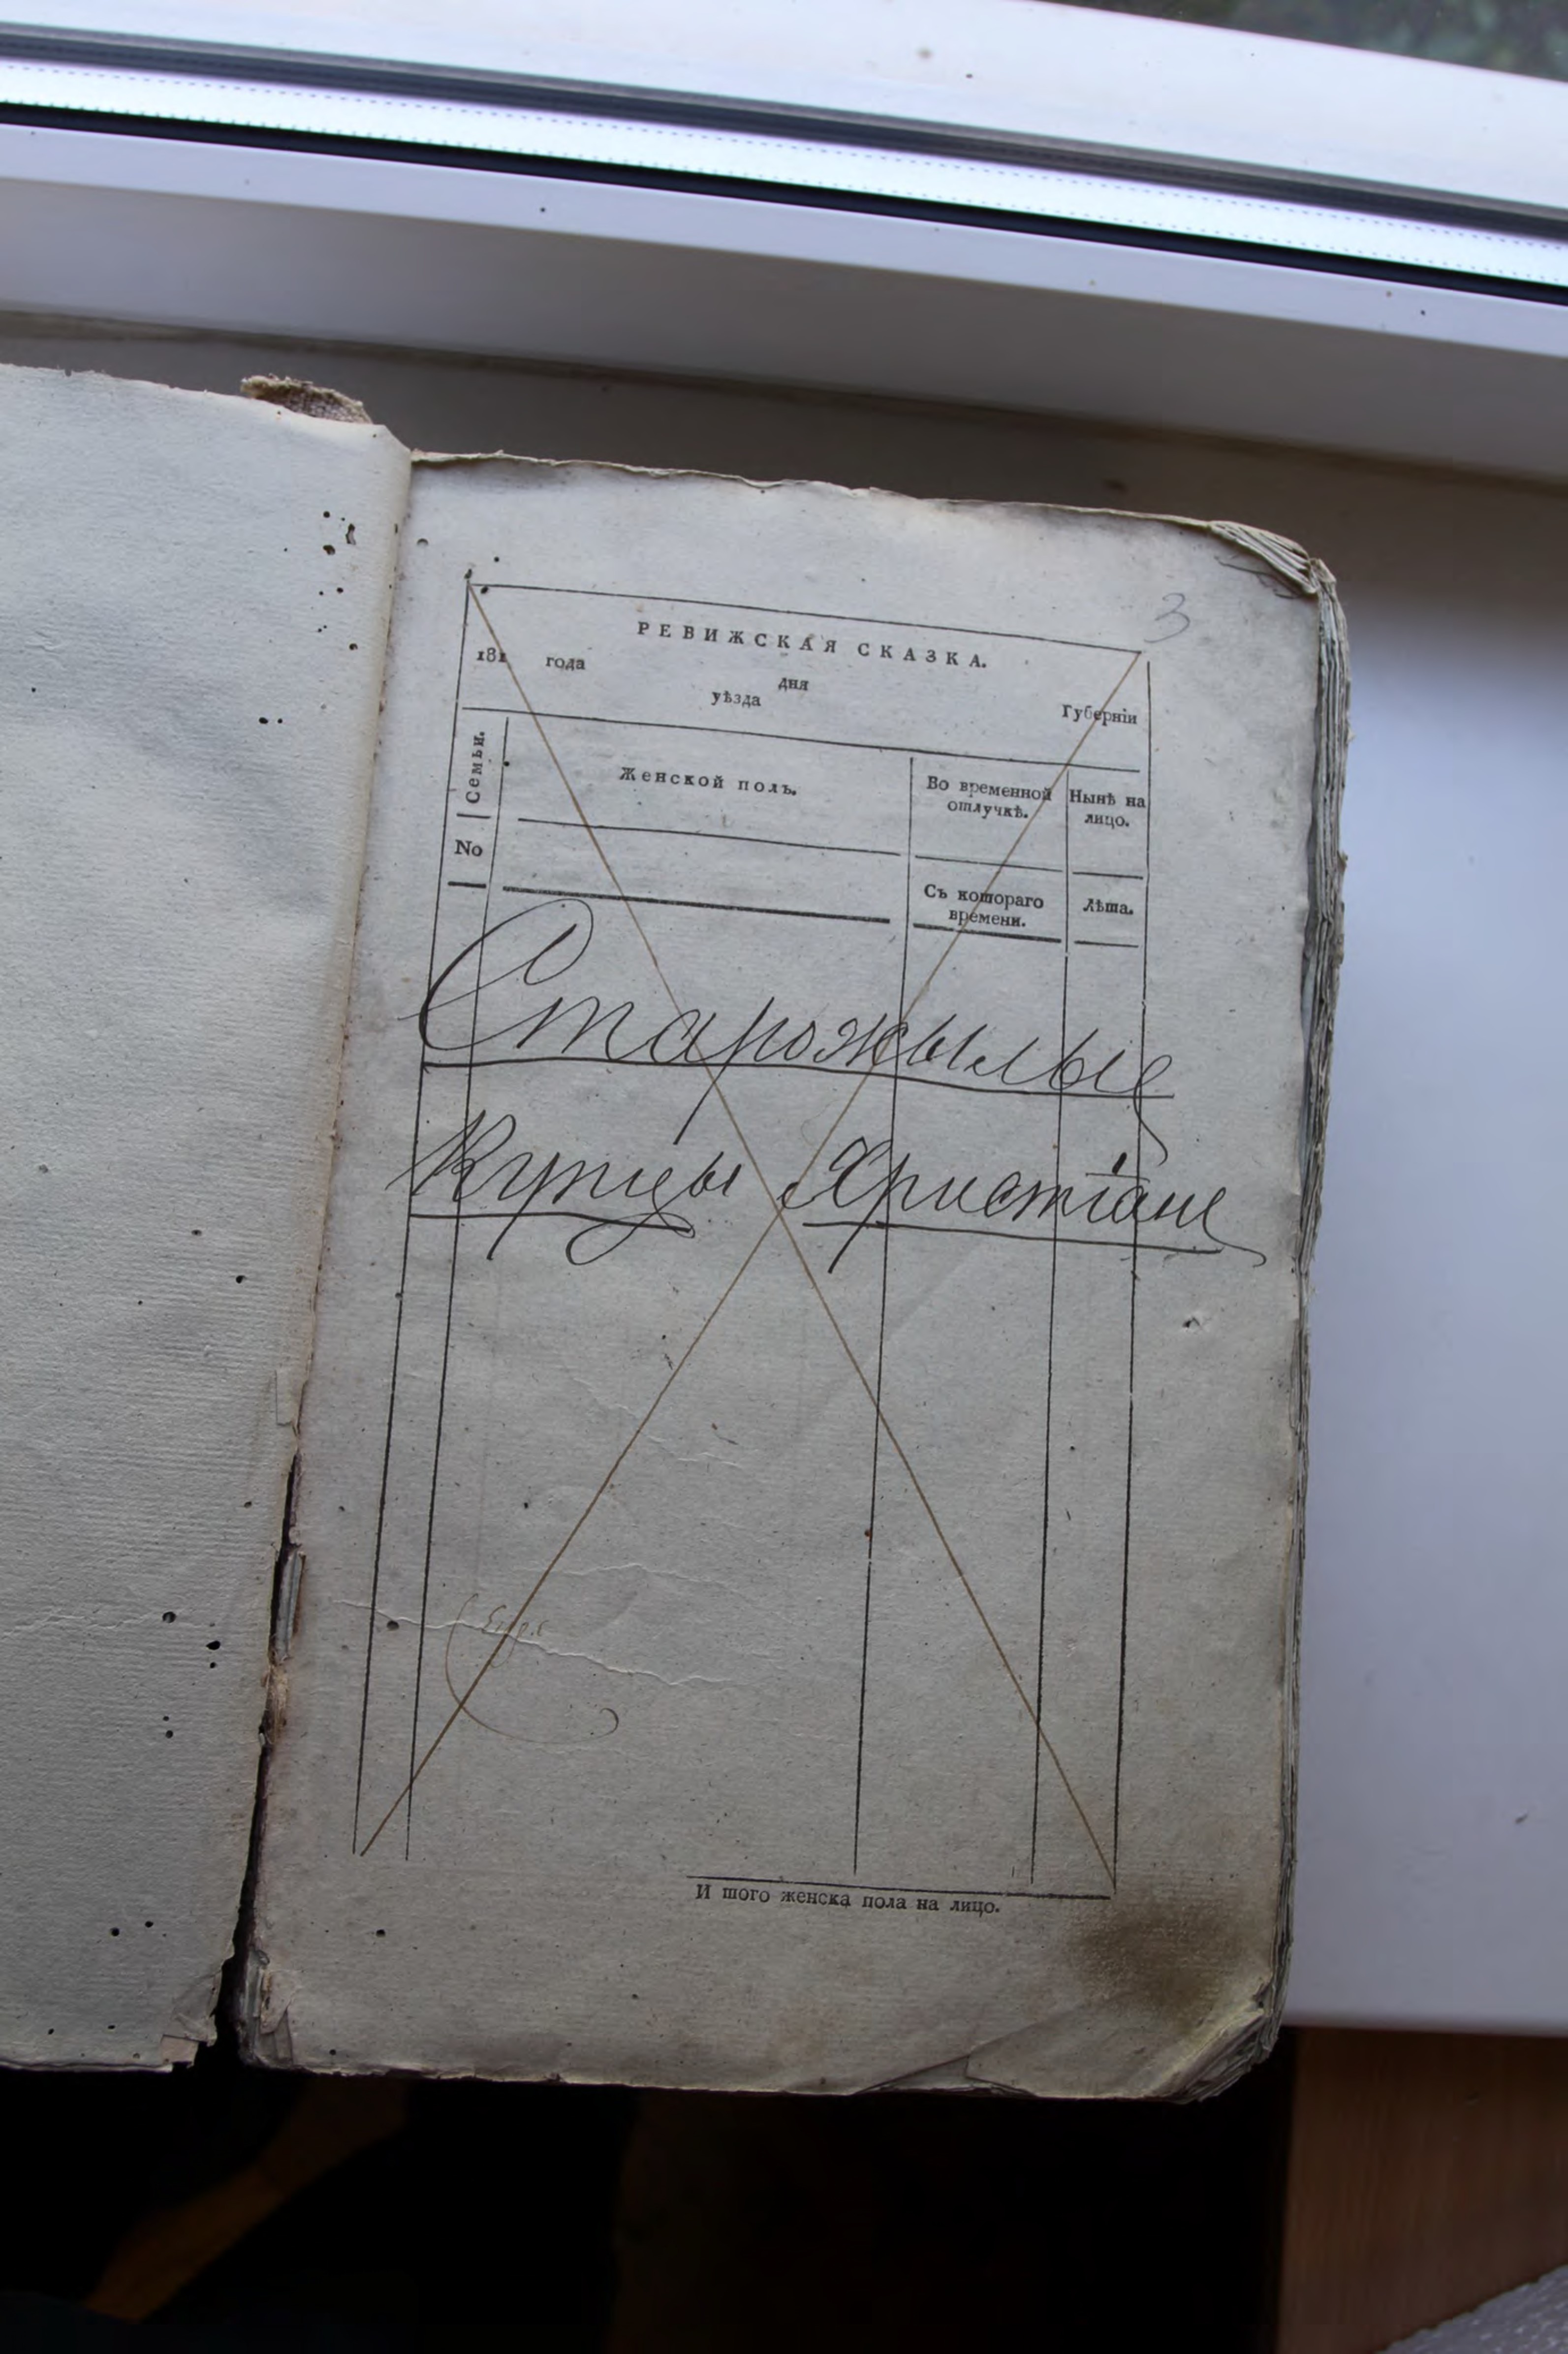 3
РЕВИЖСКАЯ СКАЗКА.
181 года дня
уѣзда Губернїи
Семьи. Женской полъ. Во временной отлучкѣ. Нынѣ на лицо.
No
Съ котораго времени. Лѣта.
Старожылые
Купцы Христіане
И того женска пола на лицо.